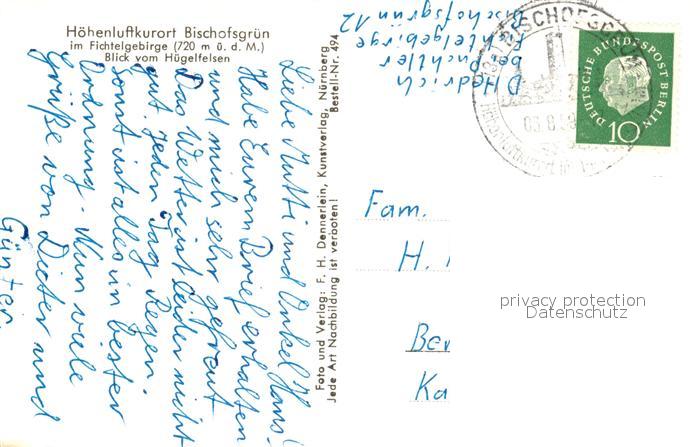 Höhenluftkurort Bischofsgrün
im Fichtelgebirge (720 m ü. d. M.)
Blick vom Hügelfelsen
Liebe Mutti und Onkel Hans!
Habe Eurem Brief erhalten
und mich sehr gefreut
Das Wetter ist leider nicht
gut. jeden Tag Regen.
Sonst ist alles in bester
Ordnung. Nun viele
Grüße von Dieter und
Günter.
Foto und Verlag: F. H. Dennerlein, Kunstverlag, Nürnberg
Jede Art Nachbildung ist verboten! Bestell-Nr. 494
D Hedrich
bei Püchtler
Fichtelgebirge
Bischofsgrün 12
BISCHOFSGRÜN
DEUTSCHE BUNDESPOST BERLIN
10
Fam.
H.
Ber
Ka
privacy protection
Datenschutz